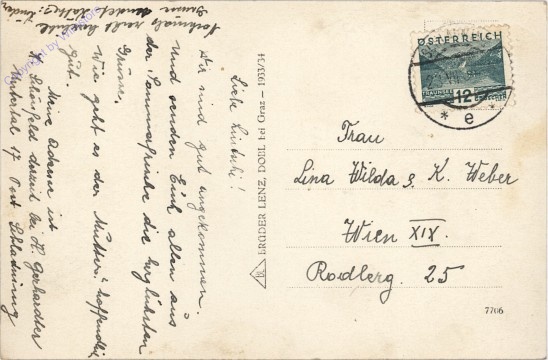 Liebe
Wir sind gut angekommen.
Und senden Euch allen aus
der Sommerfrische die herzlichsten
Grüsse.
Wie geht es der Mutter? hoffentlich
gut.
Meine Adresse ist
Schönfeld derzeit bei H. Gerhardter
Untertal 17 Post Schladming
Nochmals recht herzliche
BRÜDER LENZ, DOBL bei Graz — 1933/34
ÖSTERREICH
12
GROSCHEN
* e
Frau
Lina Wilda z. K. Weber
Wien XIX.
Rodlerg. 25
7706